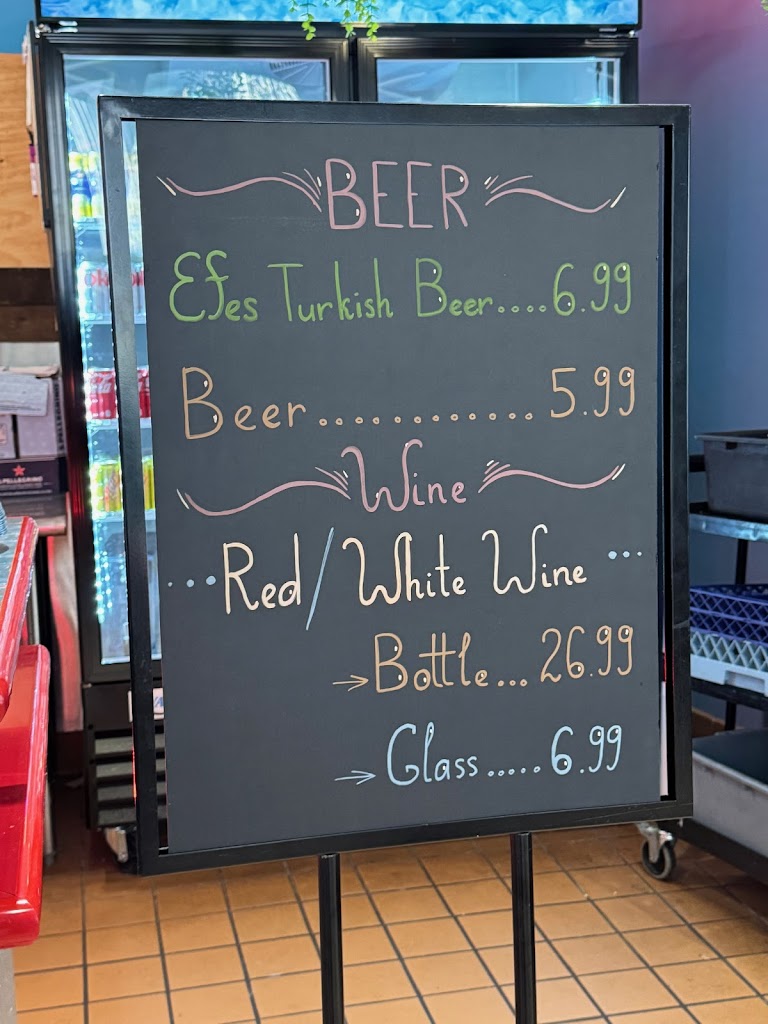 BEER
Efes Turkish Beer....6.99
Beer............5.99
Wine
...Red/White Wine...
→Bottle...26.99
→Glass.....6.99